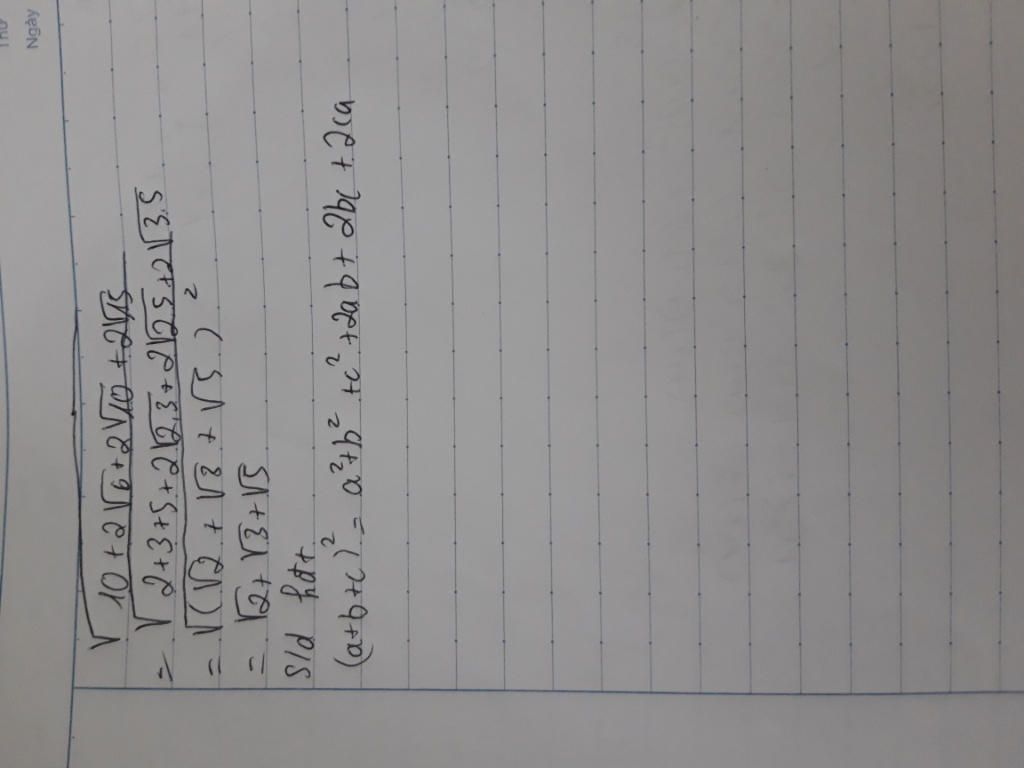 Thứ
Ngày
√(10 + 2√6 + 2√10 + 2√15)
= √(2+3+5+2√2.3+2√2.5+2√3.5)
= √(√2 + √3 + √5)²
= √2 + √3 + √5
s/d hđt
(a+b+c)² = a²+b²+c²+2ab+2bc+2ca